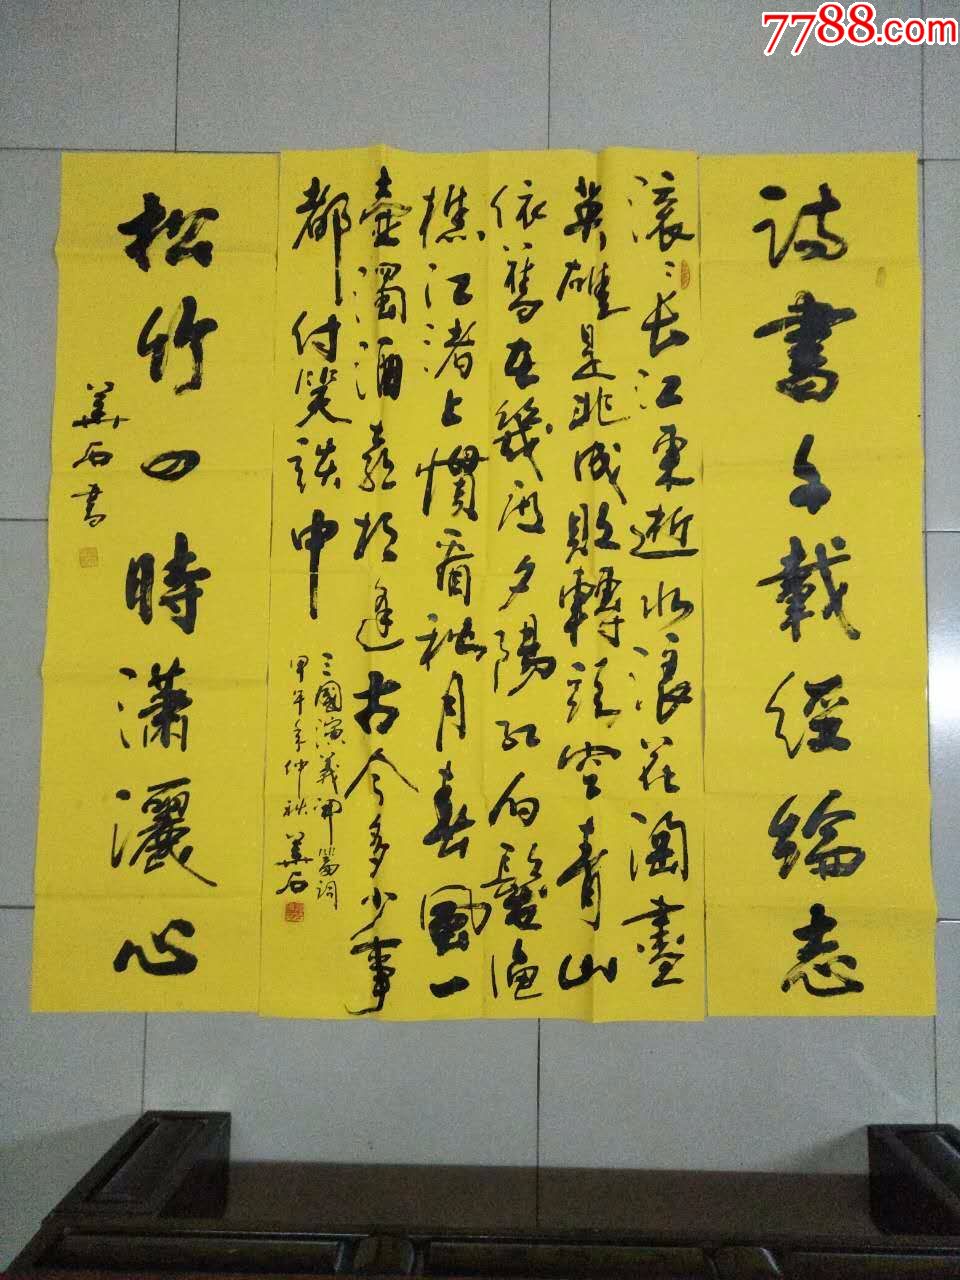 7788.com
詩書千載經綸志
滾〻長江東逝水浪花淘盡
英雄是非成敗轉頭空青山
依舊在幾度夕陽紅白髮漁
樵江渚上慣看秋月春風一
壺濁酒喜相逢古今多少事
都付笑談中
三國演義開篇詞
甲午年仲秋華石
松竹四時瀟灑心
華石書